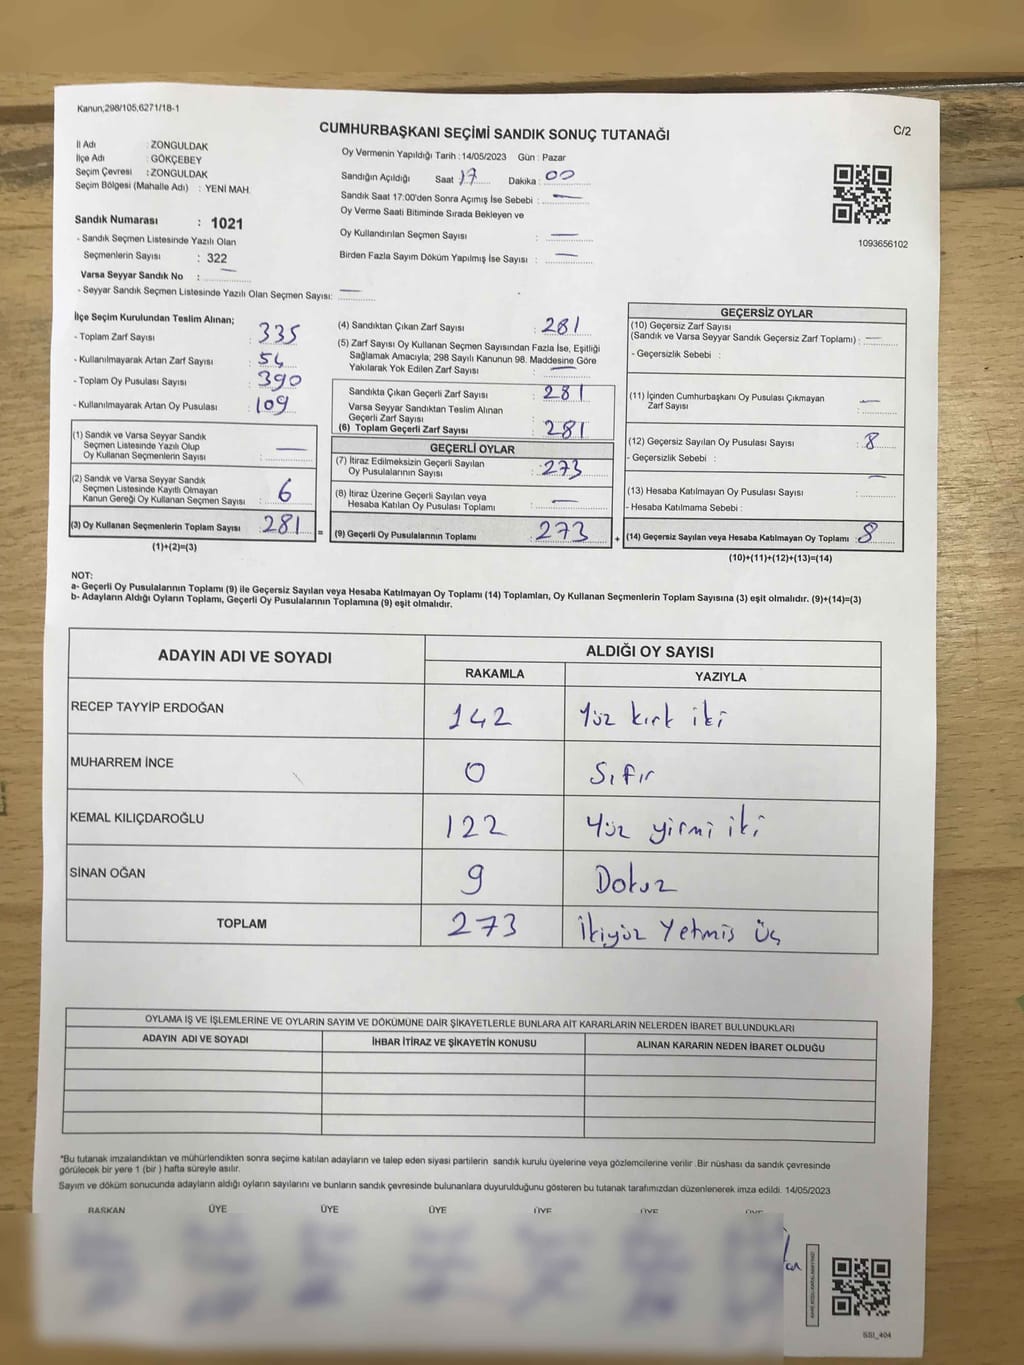 Kanun,298/105,6271/18-1
CUMHURBAŞKANI SEÇİMİ SANDIK SONUÇ TUTANAĞI
C/2
İl Adı : ZONGULDAK
İlçe Adı : GÖKÇEBEY
Seçim Çevresi : ZONGULDAK
Seçim Bölgesi (Mahalle Adı) : YENİ MAH.
Sandık Numarası : 1021
- Sandık Seçmen Listesinde Yazılı Olan
Seçmenlerin Sayısı : 322
Varsa Seyyar Sandık No : —
- Seyyar Sandık Seçmen Listesinde Yazılı Olan Seçmen Sayısı: —
Oy Vermenin Yapıldığı Tarih : 14/05/2023 Gün : Pazar
Sandığın Açıldığı Saat 17 Dakika : 00
Sandık Saat 17:00'den Sonra Açımış İse Sebebi : —
Oy Verme Saati Bitiminde Sırada Bekleyen ve
Oy Kullandırılan Seçmen Sayısı : —
Birden Fazla Sayım Döküm Yapılmış İse Sayısı : —
1093656102
İlçe Seçim Kurulundan Teslim Alınan;
- Toplam Zarf Sayısı : 335
- Kullanılmayarak Artan Zarf Sayısı : 54
- Toplam Oy Pusulası Sayısı : 390
- Kullanılmayarak Artan Oy Pusulası : 109
(1) Sandık ve Varsa Seyyar Sandık
Seçmen Listesinde Yazılı Olup
Oy Kullanan Seçmenlerin Sayısı : —
(2) Sandık ve Varsa Seyyar Sandık
Seçmen Listesinde Kayıtlı Olmayan
Kanun Gereği Oy Kullanan Seçmen Sayısı : 6
(3) Oy Kullanan Seçmenlerin Toplam Sayısı : 281 =
(1)+(2)=(3)
(4) Sandıktan Çıkan Zarf Sayısı : 281
(5) Zarf Sayısı Oy Kullanan Seçmen Sayısından Fazla İse, Eşitliği
Sağlamak Amacıyla; 298 Sayılı Kanunun 98. Maddesine Göre
Yakılarak Yok Edilen Zarf Sayısı : —
Sandıkta Çıkan Geçerli Zarf Sayısı : 281
Varsa Seyyar Sandıktan Teslim Alınan
Geçerli Zarf Sayısı :
(6) Toplam Geçerli Zarf Sayısı : 281
GEÇERLİ OYLAR
(7) İtiraz Edilmeksizin Geçerli Sayılan
Oy Pusulalarının Sayısı : 273
(8) İtiraz Üzerine Geçerli Sayılan veya
Hesaba Katılan Oy Pusulası Toplamı : —
(9) Geçerli Oy Pusulalarının Toplamı : 273 +
GEÇERSİZ OYLAR
(10) Geçersiz Zarf Sayısı
(Sandık ve Varsa Seyyar Sandık Geçersiz Zarf Toplamı) : —
- Geçersizlik Sebebi :
(11) İçinden Cumhurbaşkanı Oy Pusulası Çıkmayan
Zarf Sayısı : —
(12) Geçersiz Sayılan Oy Pusulası Sayısı : 8
- Geçersizlik Sebebi :
(13) Hesaba Katılmayan Oy Pusulası Sayısı : —
- Hesaba Katılmama Sebebi :
(14) Geçersiz Sayılan veya Hesaba Katılmayan Oy Toplamı : 8
(10)+(11)+(12)+(13)=(14)
NOT:
a- Geçerli Oy Pusulalarının Toplamı (9) ile Geçersiz Sayılan veya Hesaba Katılmayan Oy Toplamı (14) Toplamları, Oy Kullanan Seçmenlerin Toplam Sayısına (3) eşit olmalıdır. (9)+(14)=(3)
b- Adayların Aldığı Oyların Toplamı, Geçerli Oy Pusulalarının Toplamına (9) eşit olmalıdır.
ADAYIN ADI VE SOYADI
ALDIĞI OY SAYISI
RAKAMLA YAZIYLA
RECEP TAYYİP ERDOĞAN 142 Yüz kırk iki
MUHARREM İNCE 0 Sıfır
KEMAL KILIÇDAROĞLU 122 Yüz yirmi iki
SİNAN OĞAN 9 Dokuz
TOPLAM 273 İkiyüz Yetmiş Üç
OYLAMA İŞ VE İŞLEMLERİNE VE OYLARIN SAYIM VE DÖKÜMÜNE DAİR ŞİKAYETLERLE BUNLARA AİT KARARLARIN NELERDEN İBARET BULUNDUKLARI
ADAYIN ADI VE SOYADI İHBAR İTİRAZ VE ŞİKAYETİN KONUSU ALINAN KARARIN NEDEN İBARET OLDUĞU
*Bu tutanak imzalandıktan ve mühürlendikten sonra seçime katılan adayların ve talep eden siyasi partilerin sandık kurulu üyelerine veya gözlemcilerine verilir. Bir nüshası da sandık çevresinde
görülecek bir yere 1 (bir ) hafta süreyle asılır.
Sayım ve döküm sonucunda adayların aldığı oyların sayılarını ve bunların sandık çevresinde bulunanlara duyurulduğunu gösteren bu tutanak tarafımızdan düzenlenerek imza edildi. 14/05/2023
BAŞKAN ÜYE ÜYE ÜYE ÜYE ÜYE ÜYE
SSI_404